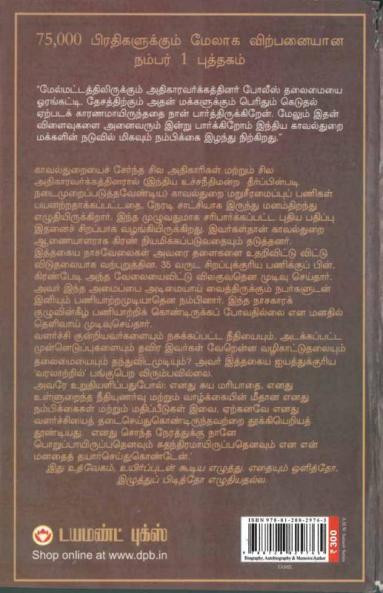 75,000 பிரதிகளுக்கும் மேலாக விற்பனையான
நம்பர் 1 புத்தகம்
“மேல்மட்டத்திலிருக்கும் அதிகாரவர்க்கத்தினர் போலீஸ் தலைமையை
ஓரங்கட்டி, தேசத்திற்கும் அதன் மக்களுக்கும் பெரிதும் கெடுதல்
ஏற்படக் காரணமாயிருந்ததை நான் பார்த்திருக்கிறேன். மேலும் இதன்
விளைவுகளை அனைவரும் இன்று பார்க்கிறோம் இந்திய காவல்துறை
மக்களின் நடுவில் மிகவும் நம்பிக்கை இழந்து நிற்கிறது.”
காவல்துறையைச் சேர்ந்த சில அதிகாரிகள் மற்றும் சில
அதிகாரவர்க்கத்தினரால் (இந்திய உச்சநீதிமன்ற தீர்ப்பின்படி
நடைமுறைப்படுத்தவேண்டிய) காவல்துறை மறுசீரமைப்புப் பணிகள்
பயனற்றதாக்கப்பட்டதை, நேரடி சாட்சியாக இருந்து மனந்திறந்து
எழுதியிருக்கிறார். இந்த முழுவதுமாக சரிபார்க்கப்பட்ட புதிய பதிப்பு
இதனைச் சிறப்பாக வழங்கியிருக்கிறது. இவர்கள்தான் காவல்துறை
ஆணையாளராக கிரண் நியமிக்கப்படுவதையும் தடுத்தனர்.
இத்தகைய நாசவேலைகள் அவரை தளைகளை உதறிவிட்டு விட்டு
விடுதலையாக வற்புறுத்தின. 35 வருட சிறப்புக்குரிய பணிக்குப் பின்,
கிரண்பேடி அந்த வேலையைவிட்டு விலகுவதென முடிவு செய்தார்.
அவர் இந்த அமைப்பை அடிமையாய் வைத்திருக்கும் நபர்களுடன்
இனியும் பணியாற்றமுடியாதென நம்பினார். இந்த நாசகாரக்
குழுவின்கீழ் பணியாற்றிக் கொண்டிருக்கப் போவதில்லை என மனதில்
தெளிவாய் முடிவுசெய்தார்.
வளர்ச்சி குன்றியவர்களையும் நசுக்கப்பட்ட நீதியையும், அடக்கப்பட்ட
முன்னெடுப்புகளையும் தவிர இவர்கள் வேறென்ன வழிகாட்டுதலையும்
தலைமையையும் தந்துவிடமுடியும்? அவர் இத்தகைய இயத்துக்குரிய
‘வரலாற்றில்’ பங்குபெற விரும்பவில்லை.
அவரே உறுதியளிப்பதுபோல்: எனது சுய மரியாதை, எனது
உள்ளுறைந்த நீதியுணர்வு மற்றும் வாழ்க்கையின் மீதான எனது
நம்பிக்கைகள் மற்றும் மதிப்பீடுகள் இவை, ஏற்கனவே எனது
வளர்ச்சியைத் தடைசெய்துகொண்டிருந்தவற்றை தூக்கியெறியத்
தூண்டியது. எனது சொந்த நேரத்துக்கு நானே
பொறுப்பாயிருப்பதெனவும் சுதந்திரமாயிருப்பதெனவும் என் என்
மனதைத் தயார்செய்துகொண்டேன்.’
இது உத்வேகம், உயிர்ப்புடன் கூடிய எழுத்து. எதையும் ஒளித்தோ,
இழுத்துப் பிடித்தோ எழுதியதல்ல.
டயமண்ட் புக்ஸ்
Shop online at www.dpb.in
ISBN 978-81-288-2976-3
₹ 300
Biography, Autobiography & Memoirs/Author
TAMIL